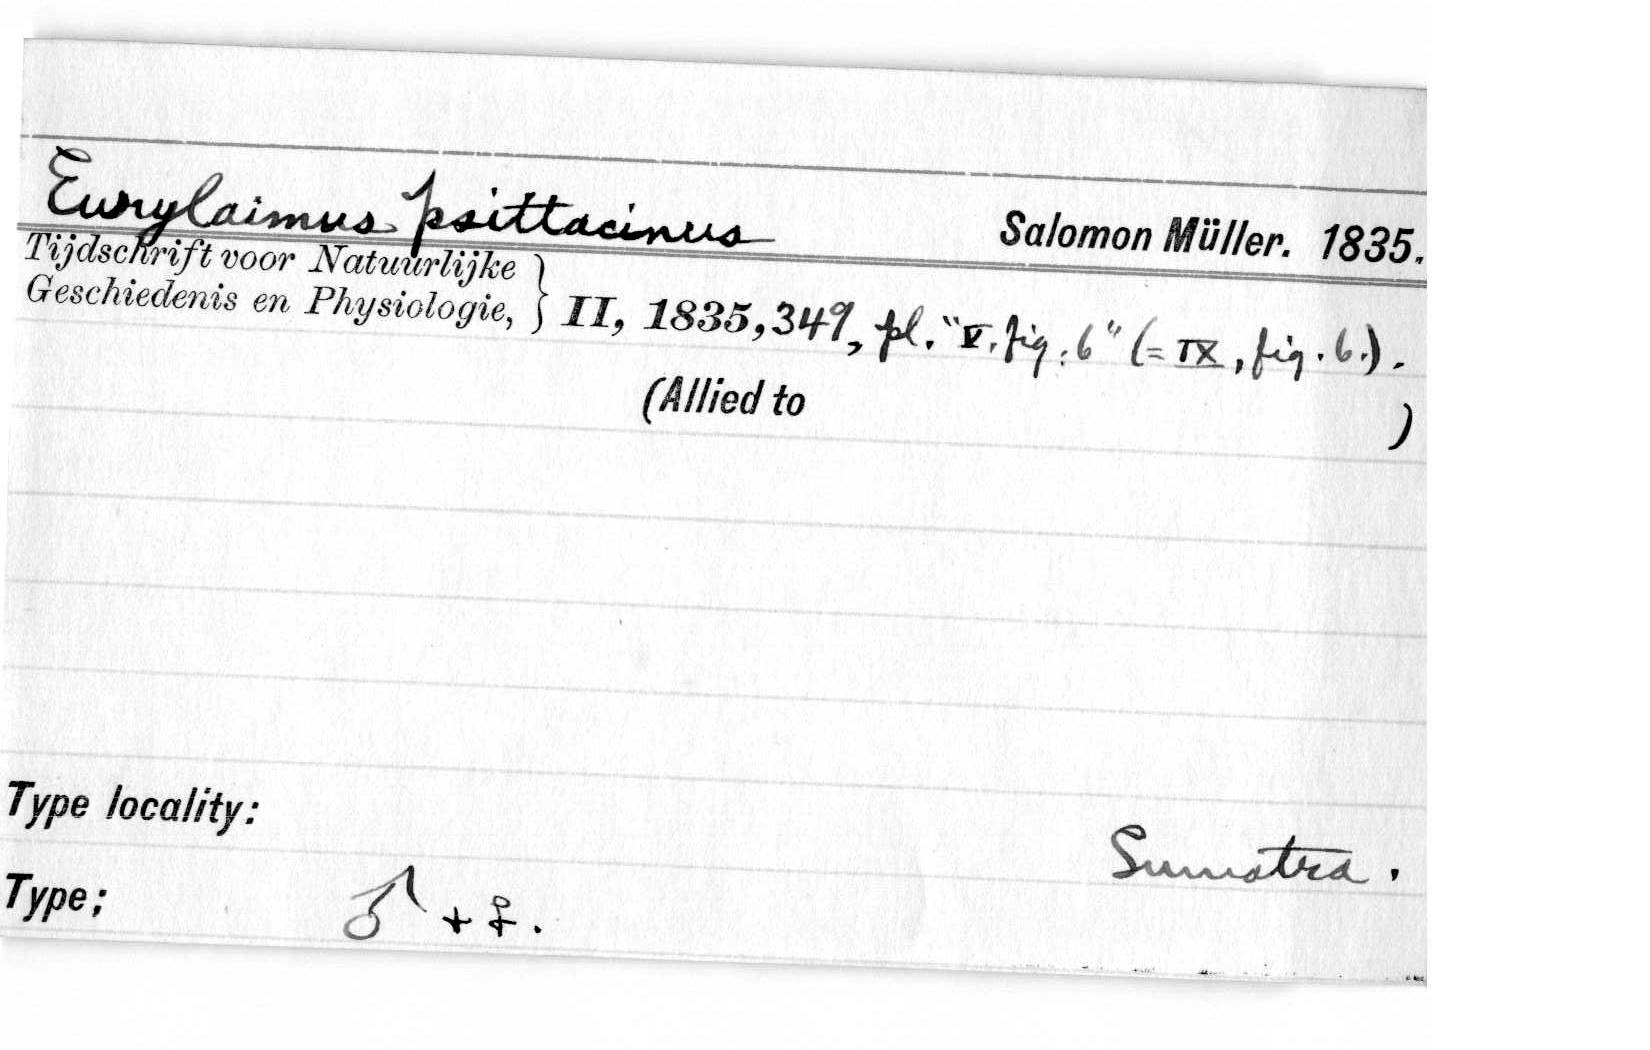 Eurylaimus psittacinus Salomon Müller. 1835.
Tijdschrift voor Natuurlijke
Geschiedenis en Physiologie, } II, 1835, 349, pl. "V. fig. 6" (= IX, fig. 6.).
(Allied to )
Type locality:
Sumatra.
Type; ♂ + ♀.